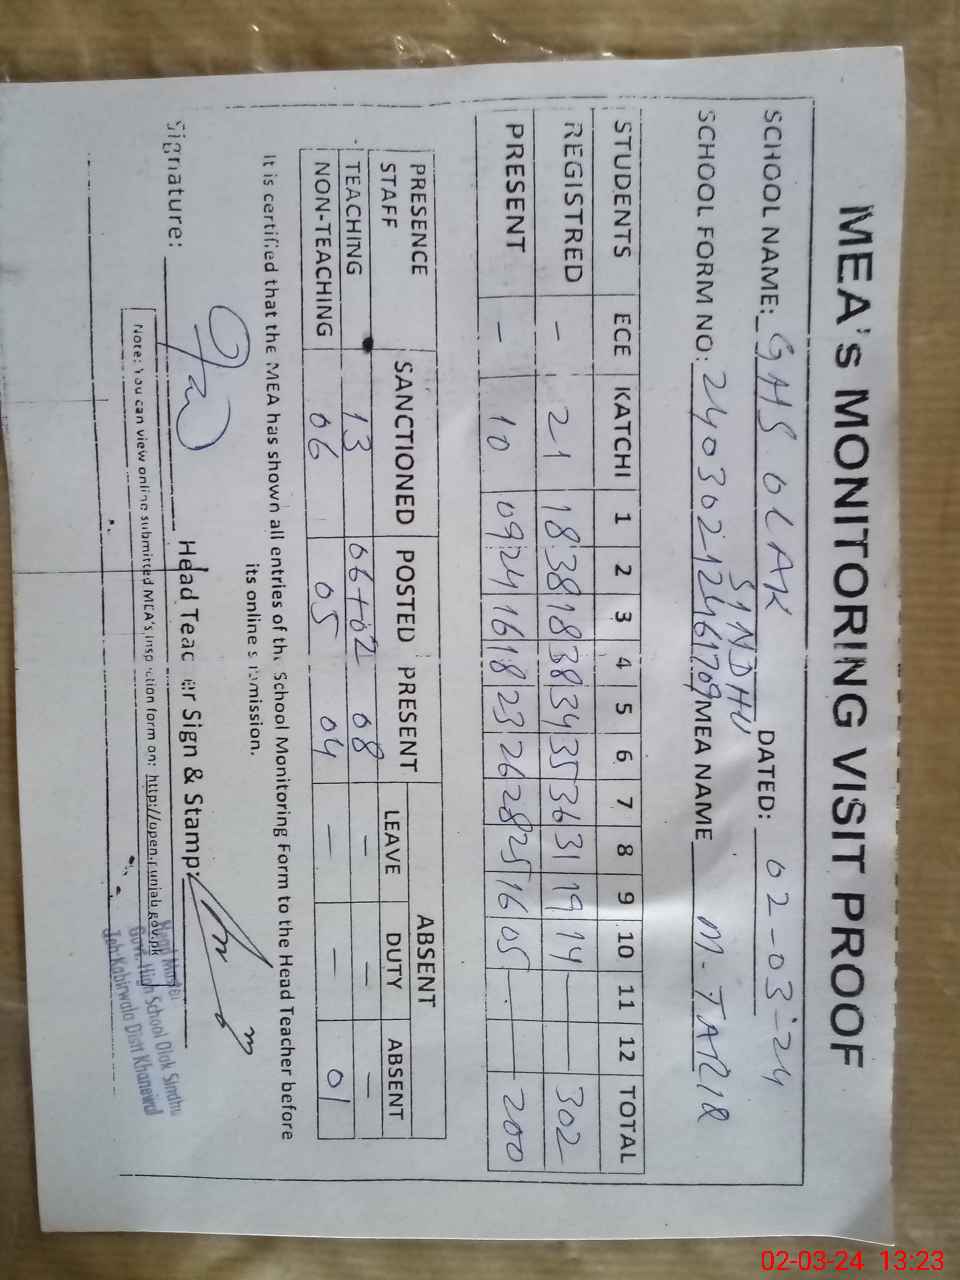 MEA's MONITORING VISIT PROOF
SCHOOL NAME: GHS OLAK SINDHU DATED: 02-03-24
SCHOOL FORM NO: 24030212461709 MEA NAME M. TARIQ
STUDENTS ECE KATCHI 1 2 3 4 5 6 7 8 9 10 11 12 TOTAL
REGISTRED - 21 18 38 18 38 34 35 36 31 19 14 - - 302
PRESENT - 10 09 24 16 18 23 26 28 25 16 05 - - 200
PRESENCE STAFF SANCTIONED POSTED PRESENT ABSENT
LEAVE DUTY ABSENT
TEACHING 13 06+02 08 - - -
NON-TEACHING 06 05 04 - - 01
It is certified that the MEA has shown all entries of the School Monitoring Form to the Head Teacher before
its online submission.
Signature: Head Teacher Sign & Stamp:
Head Master
Govt. High School Olak Sindhu
Teh: Kabirwala Distt Khanewal
Note: You can view online submitted MEA's inspection form on: http://open.punjab.gov.pk
02-03-24 13:23